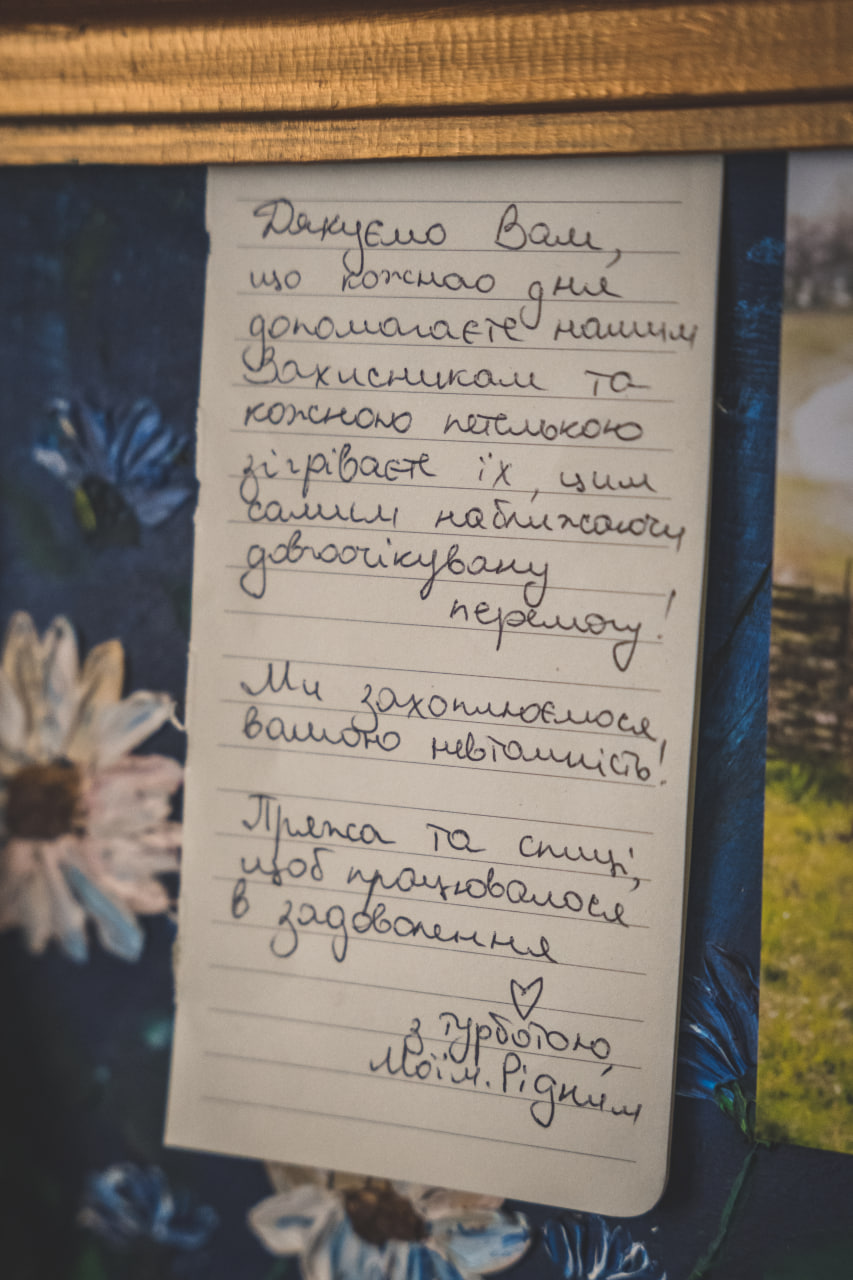 Дякуємо Вам,
що кожного дня
допомагаєте нашим
Захисникам та
кожною петелькою
зігріваєте їх, цим
самим наближаючи
довгоочікувану
перемогу!
Ми захоплюємося,
вашою невтомність!
Пряжа та спиці,
щоб працювалося
в задоволення
з турботою,
Моїм. Рідним